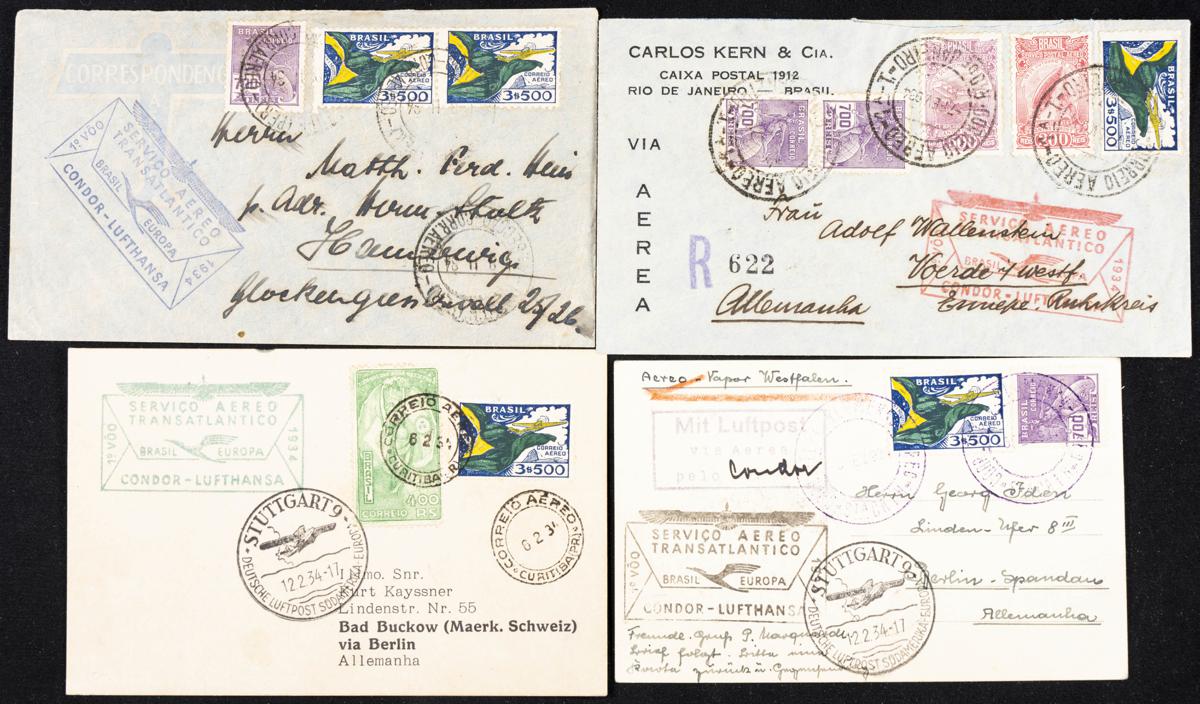 CORRESPONDENC
BRASIL
CORREIO AEREO
3$500
BRASIL
CORREIO AEREO
3$500
1º VÔO
SERVIÇO AEREO
TRANSATLANTICO
BRASIL EUROPA
CONDOR-LUFTHANSA
1934
Herrn
Matth. Ferd. Heins
p. Adr. Herm. Stoltz
Hamburg
Glockengiesserwall 25/26
CARLOS KERN & CIA.
CAIXA POSTAL 1912
RIO DE JANEIRO — BRASIL
VIA
AEREA
700
BRASIL
700
BRASIL
BRASIL
300
REIS
BRASIL
3$500
CORREIO AEREO
R 622
SERVIÇO AEREO
TRANSATLANTICO
BRASIL
1º VÔO
1934
CONDOR-LUFTHANSA
Frau
Adolf Wallenstein
Voerde i/Westf.
Ennepe-Ruhrkreis
Allemanha
SERVIÇO AEREO
TRANSATLANTICO
1º VÔO
1934
BRASIL EUROPA
CONDOR-LUFTHANSA
BRASIL
CORREIO
400
RS
CORREIO AEREO
6 2 34
CURITIBA
BRASIL
CORREIO AEREO
3$500
CORREIO AEREO
6 2 34
CURITIBA (PR.)
STUTTGART 9
12.2.34-17
DEUTSCHE LUFTPOST SÜDAMERIKA-EUROPA
Snr.
Kurt Kayssner
Lindenstr. Nr. 55
Bad Buckow (Maerk. Schweiz)
via Berlin
Allemanha
Aereo - Vapor Westfalen.
Mit Luftpost
via Aerea
pelo
Condor
BRASIL
CORREIO AEREO
3$500
BRASIL
CORREIO
SERVIÇO AEREO
TRANSATLANTICO
BRASIL EUROPA
CONDOR-LUFTHANSA
STUTTGART 9
12.2.34-17
DEUTSCHE LUFTPOST SÜDAMERIKA-EUROPA
Herrn Georg Iden
Linden-Ufer 8 III
Berlin-Spandau
Allemanha
Freundl. Gruß P. Marquardt
Brief folgt. Bitte um
Karte zurück u.